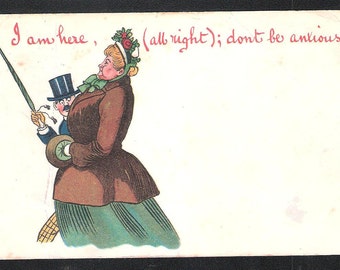 I am here, (all right); dont be anxious